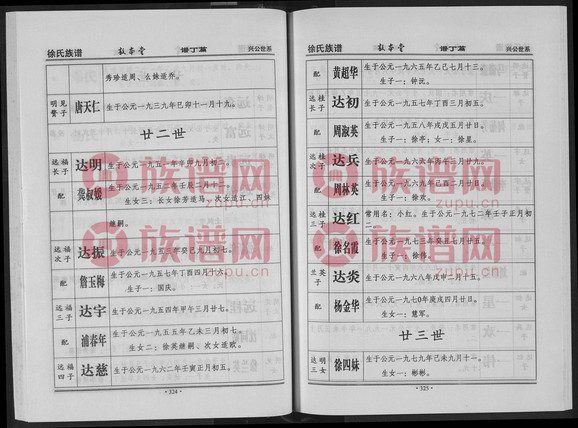 徐氏族谱 叙本堂 谱丁篇 兴公世系
秀珍适周、么妹适乔。
明见赘子 唐天仁 生于公元一九三九年己卯十一月十九。
廿二世
远福长子 达明 生于公元一九五一年辛卯九月初二。
配 龚淑媛 生于公元一九五二年壬辰二月十二。
生女三：长女徐芳适马、次女适江、四妹
继嗣。
远福次子 达振 生于公元一九五三年癸巳九月初七。
配 詹玉梅 生于公元一九五七年丁酉四月十六。
生子一：国扶。
远福三子 达宇 生于公元一九五四年甲午三月廿七。
配 浦春年 生于公元一九五五年乙未三月初七。
生女二：徐英继嗣、次女适欧。
远福四子 达慈 生于公元一九六二年壬寅正月初五。
·324·
徐氏族谱 叙本堂 谱丁篇 兴公世系
配 黄超华 生于公元一九六五年乙巳七月十三。
生子一：钟沅。
远桂长子 达初 生于公元一九五七年丁酉三月初五。
配 周淑英 生于公元一九五八年戊戌五月廿日。
生子一：徐亭；女一：徐星。
远桂次子 达兵 生于公元一九六六年丙午三月廿九。
配 周林英 生于公元一九六九年己酉二月廿日。
生子一：徐欢。
远桂三子 达红 常用名：小红。生于公元一九七二年壬子正月初
二。
配 徐名霞 生于公元一九七三年癸丑七月廿五。
生子一：徐伟。
兰英子 达炎 生于公元一九六八年戊申二月廿二。
配 杨金华 生于公元一九七0年庚戌四月廿日。
生子一：慧军。
廿三世
达明三女 徐四妹 生于公元一九七九年己未九月十一。
生女一：彬彬。
·325·
族谱网
zupu.cn
族谱网
zupu.cn
族谱网
zupu.cn
族谱网
zupu.cn